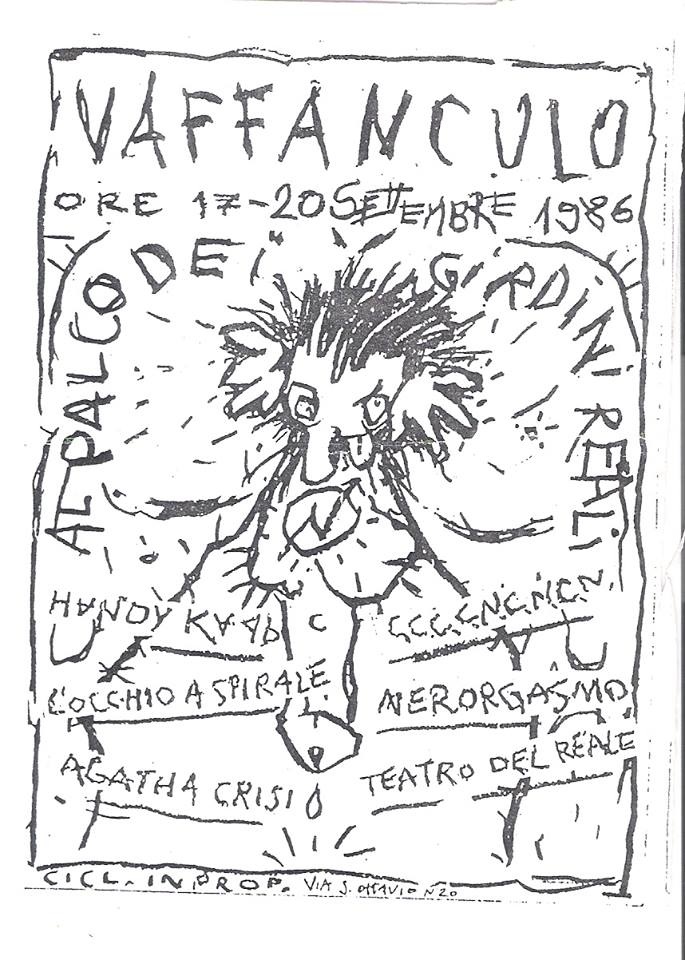 VAFFANCULO
ORE 17-20 SETTEMBRE 1986
AL PALCO DEI GIRDINI REALI
HANDY KAAP
C.C.C.C.N.C.N.C.N.
L'OCCHIO A SPIRALE
NERORGASMO
AGATHA CRISI
TEATRO DEL REALE
CICL. IN PROP. VIA S. OTTAVIO N 20